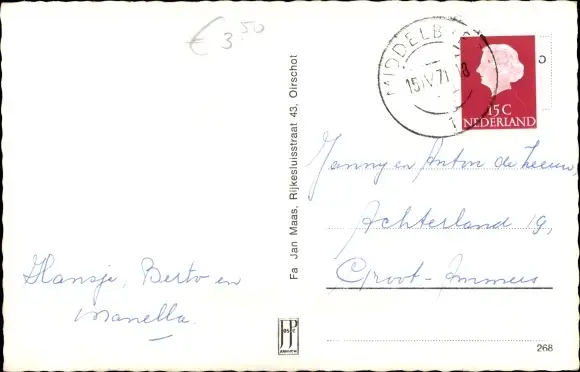 € 3.50
MIDDELB
15 IV 71 18
1
15C
NEDERLAND
Fa Jan Maas, Rijkesluisstraat 43, Oirschot
Janny en Anton de Leeuw,
Achterland 19,
Groot-Ammers
Hansje, Berto en
Manella.
JP
268